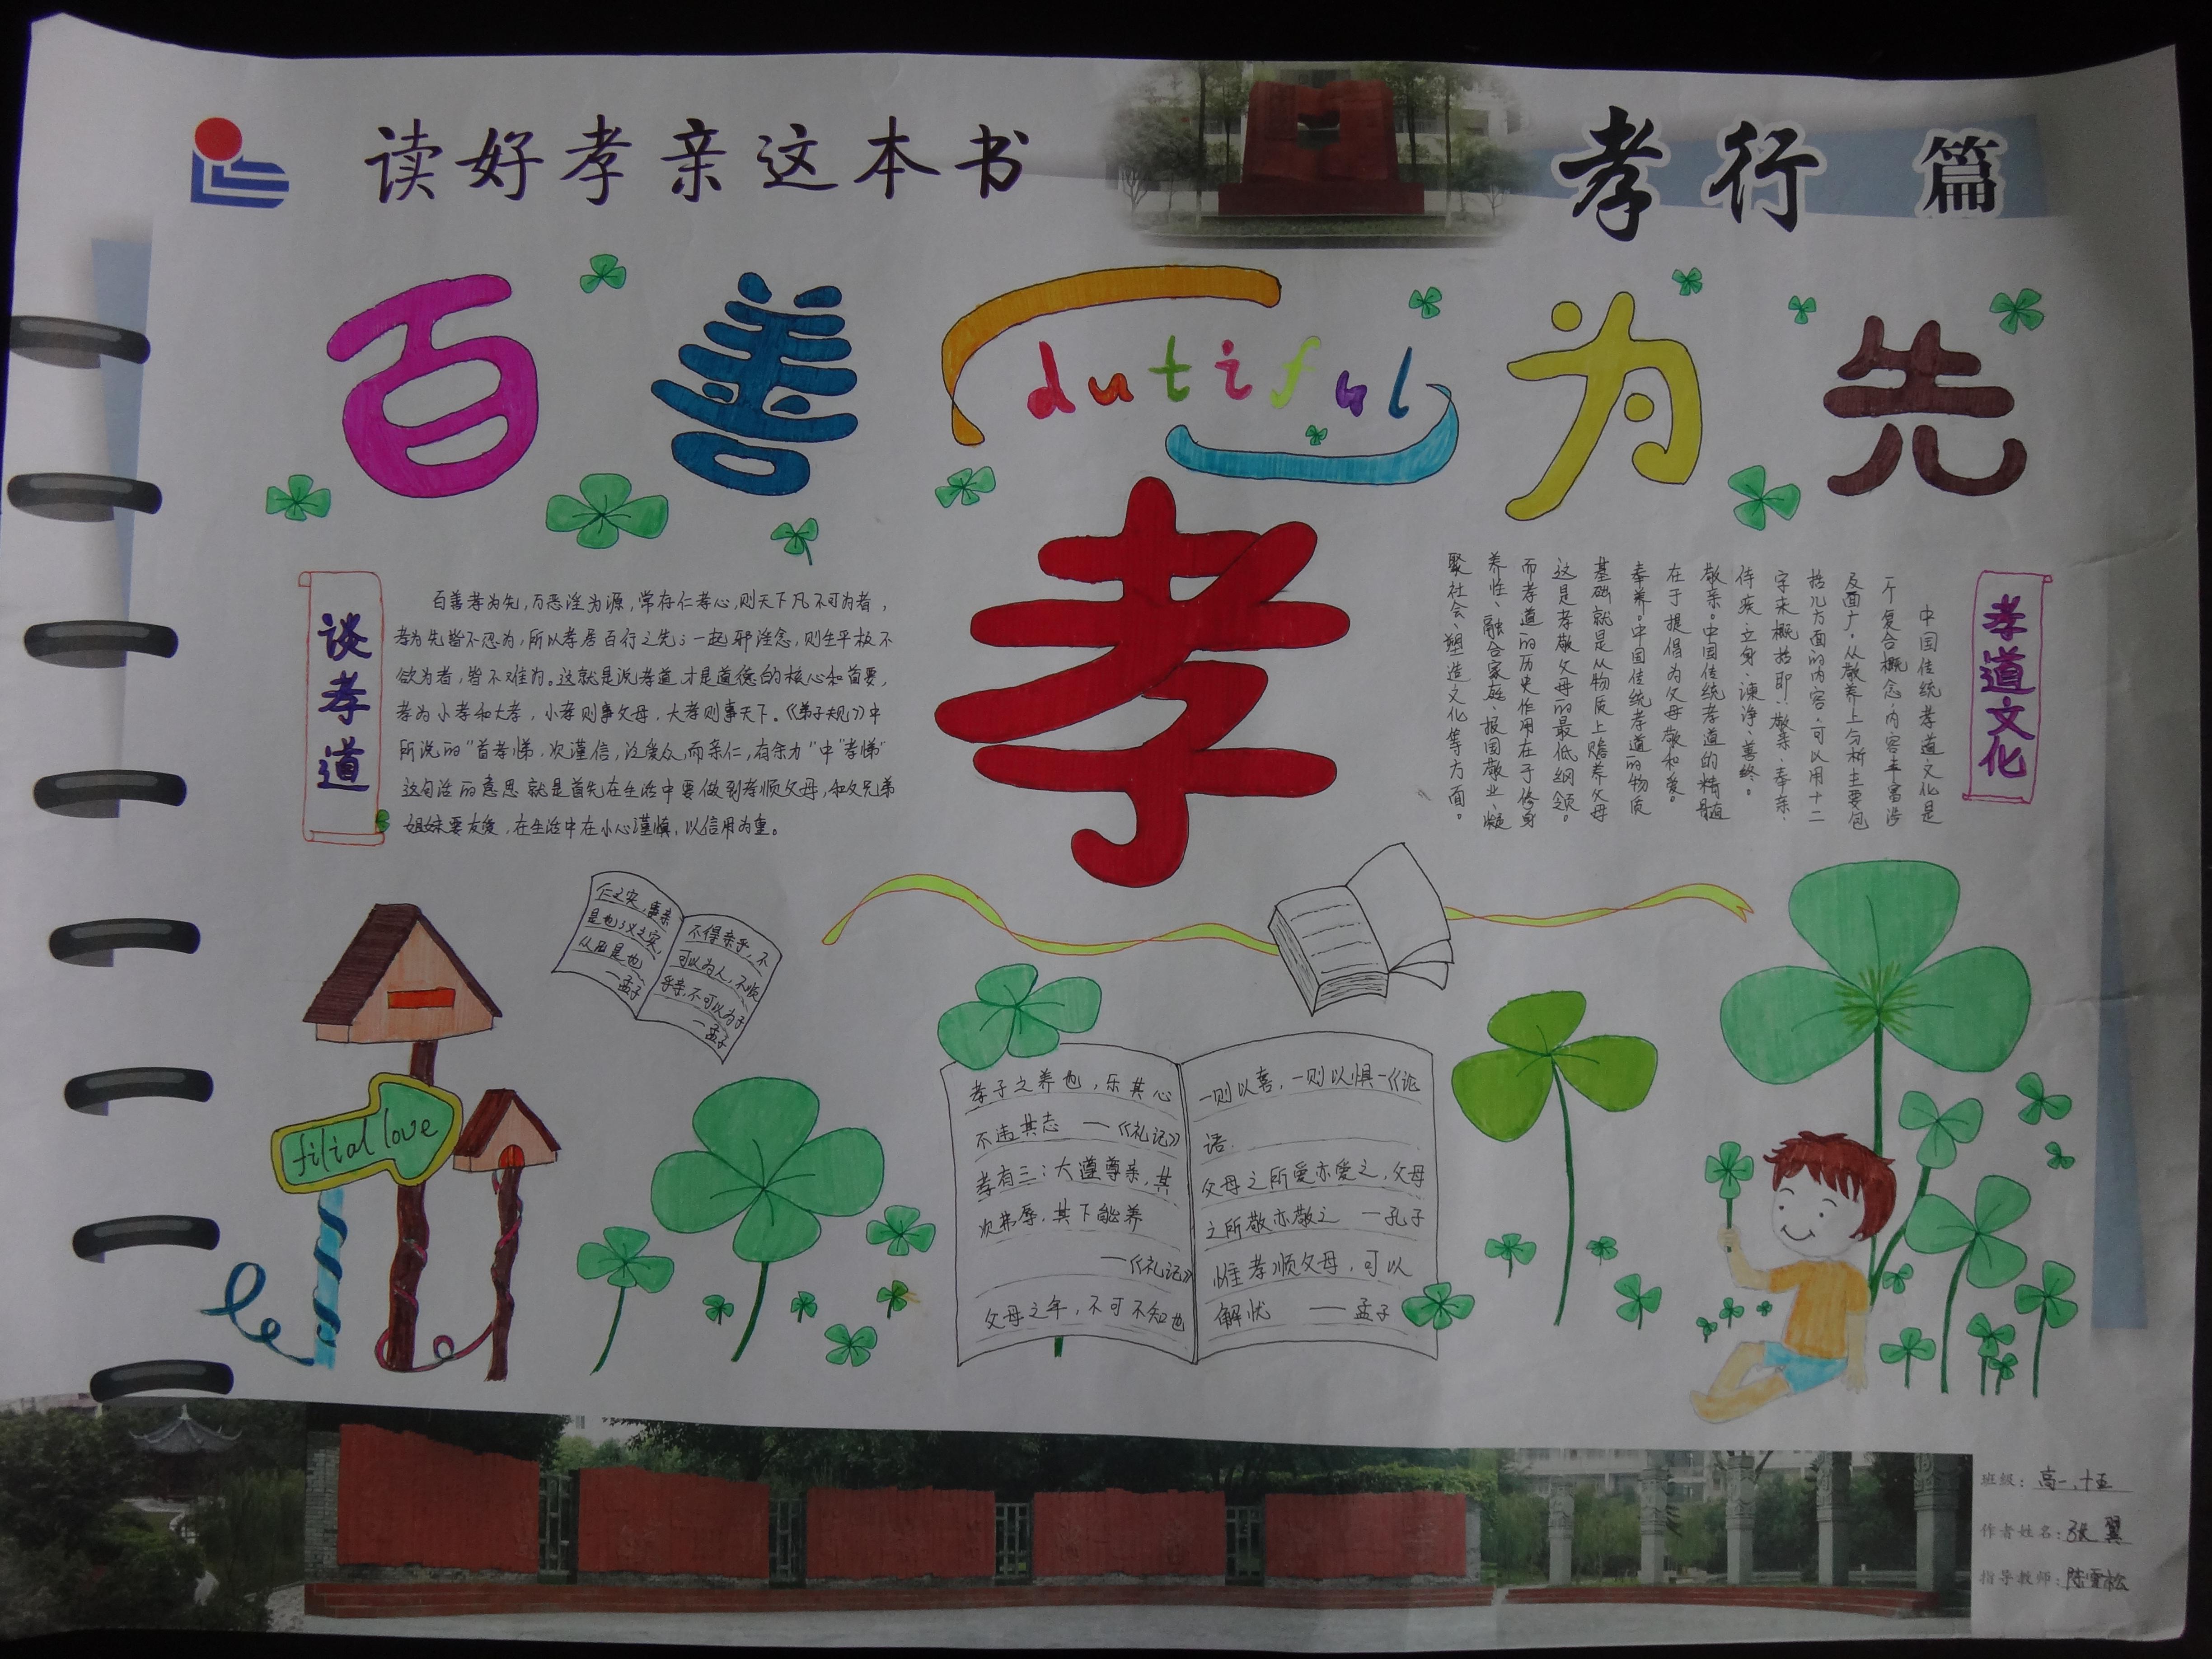 读好孝亲这本书
孝行 篇
百善 dutiful 为先
孝
谈孝道
百善孝为先，万恶淫为源，常存仁孝心，则天下凡不可为者，
孝为先皆不忍为，所以孝居百行之先；一起邪淫念，则生平极不
欲为者，皆不难为。这就是说孝道才是道德的核心和首要，
孝为小孝和大孝，小孝则事父母，大孝则事天下。《弟子规》中
所说的“首孝悌，次谨信，泛爱众，而亲仁，有余力”中“孝悌”
这句话的意思就是首先在生活中要做到孝顺父母，和父兄弟
姐妹要友爱，在生活中在小心谨慎，以信用为重。
孝道文化
中国传统孝道文化是
一个复合概念，内容丰富涉
及面广，从敬养上分析主要包
括几方面的内容，可以用十二
字来概括即：敬亲、奉亲、
侍疾、立身、谏诤、善终。
敬亲。中国传统孝道的精髓
在于提倡为父母敬和爱。
奉养。中国传统孝道的物质
基础就是从物质上赡养父母
这是孝敬父母的最低纲领。
而孝道的历史作用在于修身
养性、融合家庭、报国敬业、凝
聚社会、塑造文化等方面。
仁之实，事亲
是也；义之实，
从兄是也
—孟子
不得亲乎，不
可以为人，不顺
乎亲，不可以为子
—孟子
filial love
孝子之养也，乐其心
不违其志 —《礼记》
孝有三：大遵尊亲，其
次弗辱，其下能养
—《礼记》
父母之年，不可不知也
一则以喜，一则以惧—《论
语.
父母之所爱亦爱之，父母
之所敬亦敬之 —孔子
惟孝顺父母，可以
解忧 —孟子
班级：高一、十五
作者姓名：张翼
指导教师：陈雪松